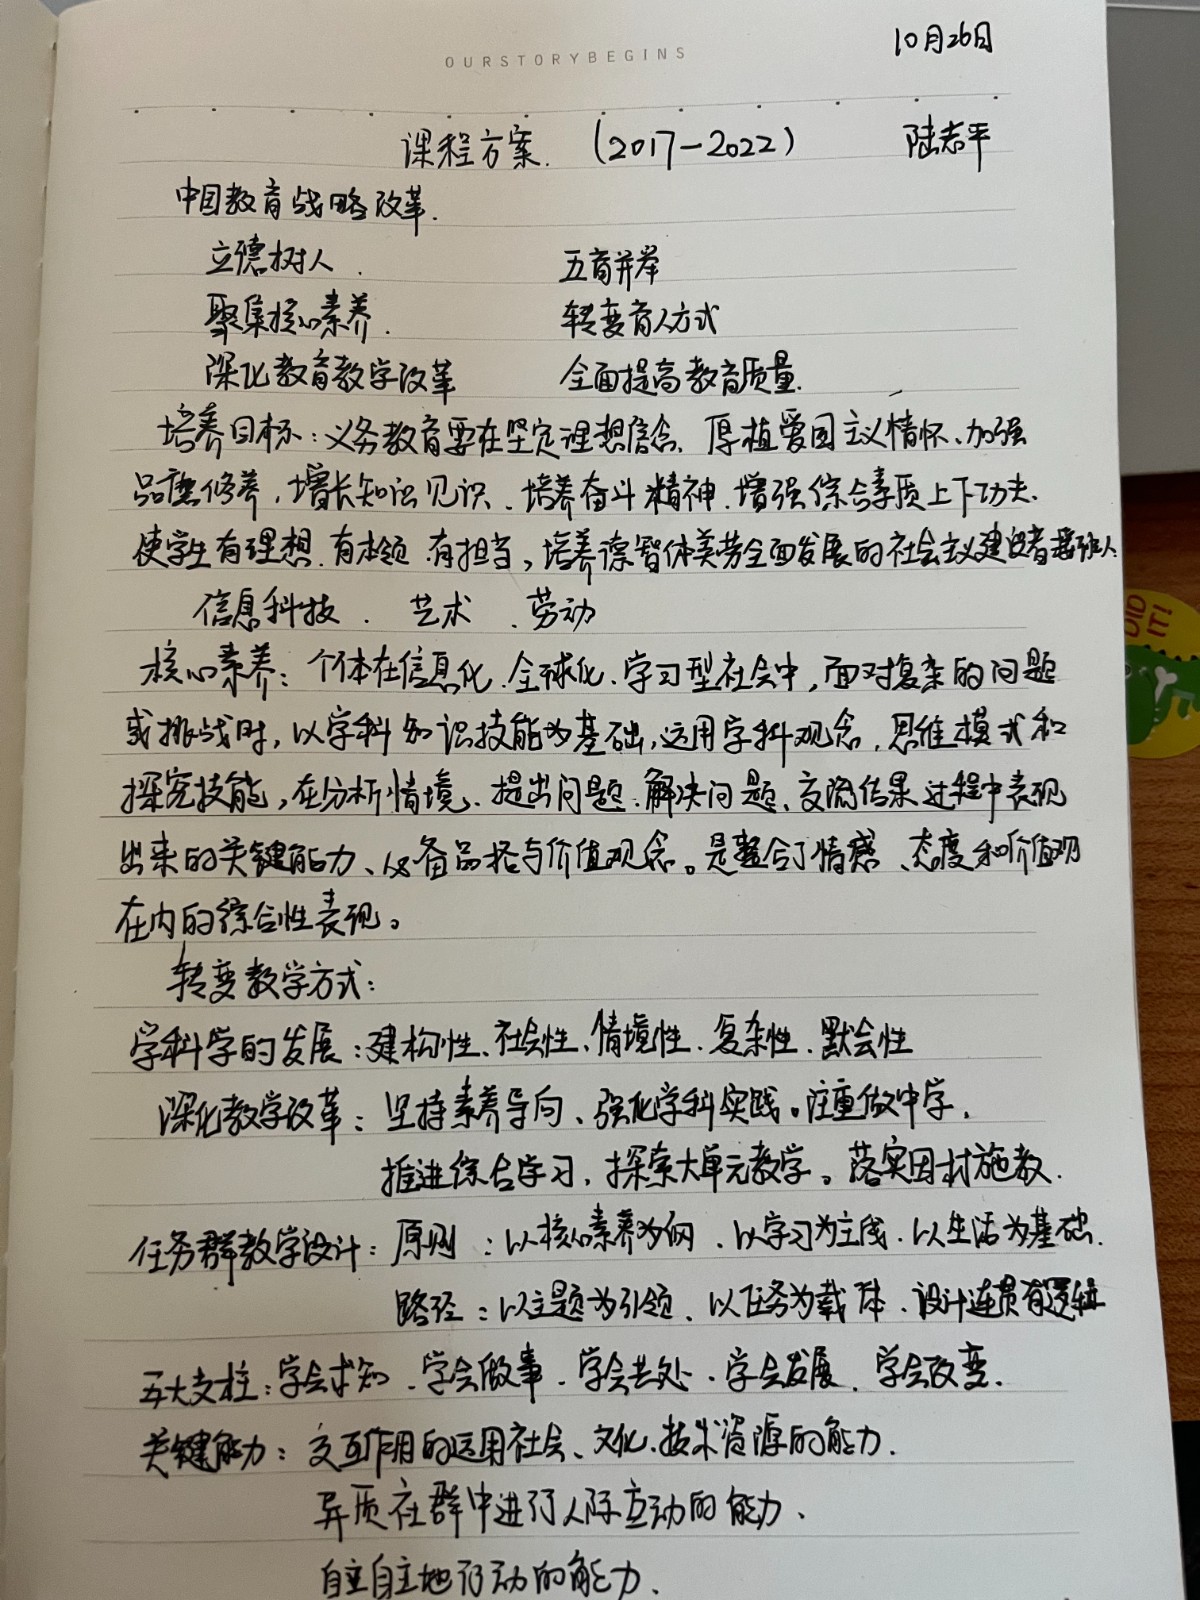 OURSTORYBEGINS
10月26日
课程方案. (2017-2022) 陆志平
中国教育战略改革.
立德树人. 五育并举
聚集核心素养. 转变育人方式
深化教育教学改革 全面提高教育质量.
培养目标:义务教育要在坚定理想信念、厚植爱国主义情怀、加强
品德修养,增长知识见识、培养奋斗精神、增强综合素质上下功夫.
使学生有理想.有本领.有担当,培养德智体美劳全面发展的社会主义建设者接班人
信息科技. 艺术 .劳动
核心素养:个体在信息化、全球化、学习型社会中,面对复杂的问题
或挑战时,以学科知识技能为基础,运用学科观念,思维模式和
探究技能,在分析情境、提出问题、解决问题、交流结果过程中表现
出来的关键能力、必备品格与价值观念。是整合了情感、态度和价值观
在内的综合性表现。
转变教学方式:
学科学的发展:建构性、社会性、情境性、复杂性、默会性
深化教学改革:坚持素养导向、强化学科实践。注重做中学,
推进综合学习,探索大单元教学。落实因材施教.
任务群教学设计:原则:以核心素养为纲、以学习为主线、以生活为基础.
路径:以主题为引领、以任务为载体、设计连贯有逻辑
五大支柱:学会求知、学会做事、学会共处、学会发展、学会改变.
关键能力:交互作用的运用社会、文化、技术资源的能力.
异质社群中进行人际互动的能力、
自主自主地行动的能力.
DID
IT!